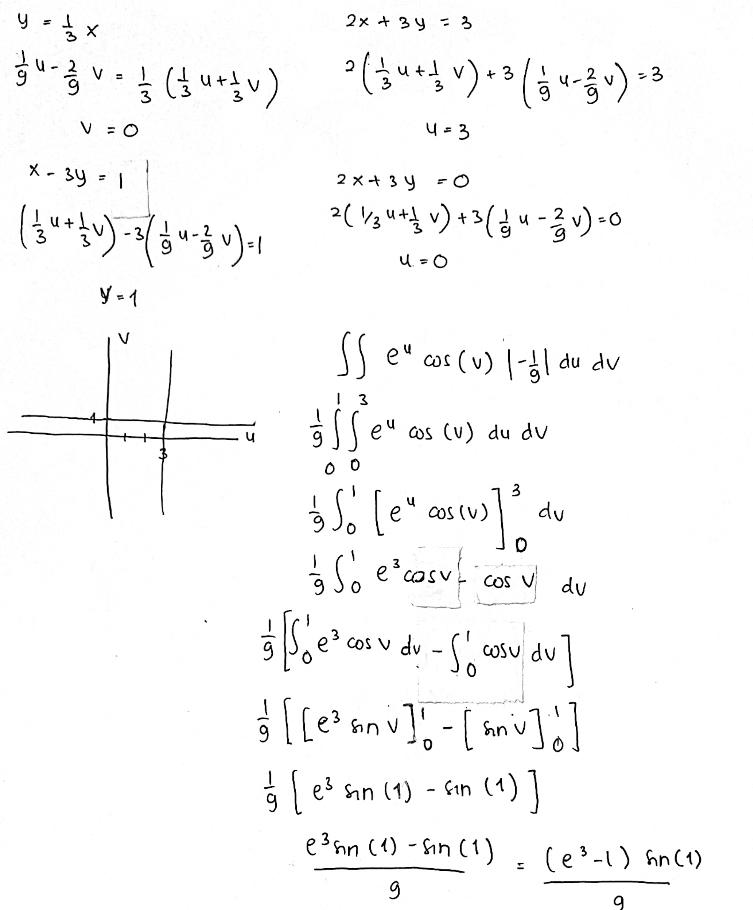 y = 1/3 x
1/9 u - 2/9 v = 1/3 (1/3 u + 1/3 v)
v = 0
2x + 3y = 3
2(1/3 u + 1/3 v) + 3(1/9 u - 2/9 v) = 3
u = 3
x - 3y = 1
(1/3 u + 1/3 v) - 3(1/9 u - 2/9 v) = 1
v = 1
2x + 3y = 0
2(1/3 u + 1/3 v) + 3(1/9 u - 2/9 v) = 0
u = 0
v
1
u
3
∬ e^u cos(v) |-1/9| du dv
1/9 ∫_0^1 ∫_0^3 e^u cos(v) du dv
1/9 ∫_0^1 [e^u cos(v)]_0^3 dv
1/9 ∫_0^1 e^3 cos v - cos v dv
1/9 [∫_0^1 e^3 cos v dv - ∫_0^1 cos v dv]
1/9 [[e^3 sin v]_0^1 - [sin v]_0^1]
1/9 [e^3 sin(1) - sin(1)]
(e^3 sin(1) - sin(1))/9 = ((e^3 - 1) sin(1))/9